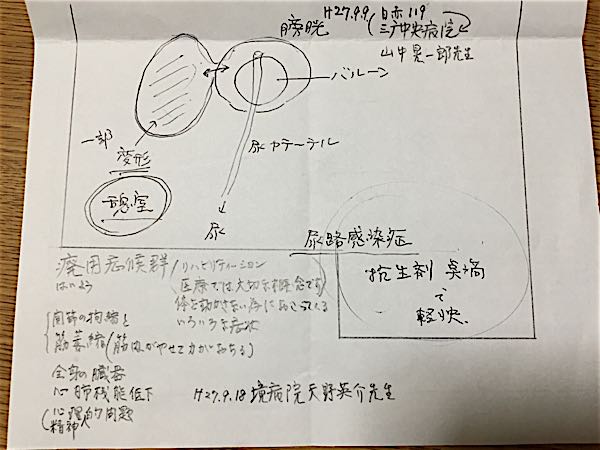 膀胱
H27.9.9
日赤119
三戸中央病院
山中晃一郎先生
バルーン
尿カテーテル
一部
変形
憩室
尿
尿路感染症
抗生剤 点滴
で
軽快.
廃用症候群/リハビリテーション
はいよう
医療では大切な概念です
体を動かさない為におこってくる
いろいろな症状
関節の拘縮と
筋萎縮(筋肉がやせて力がおちる)
全身の臓器
心肺機能低下
心理的問題
精神
H27.9.18 境病院 天野英介先生